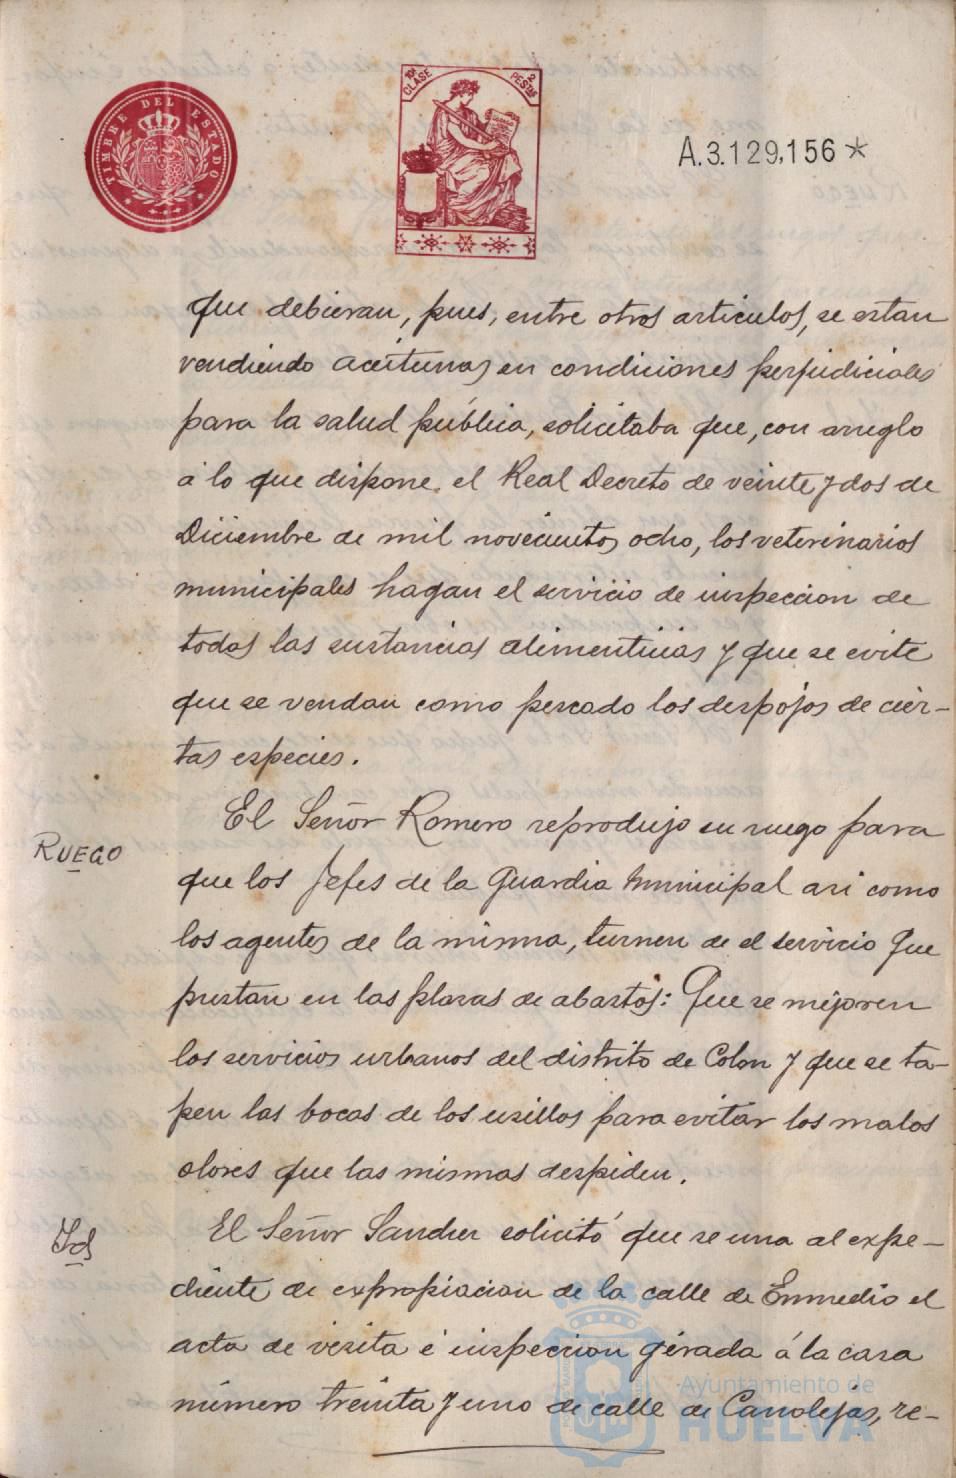 TIMBRE DEL ESTADO
10ª CLASE
2 PESTAS
A.3.129,156*
que debieran, pues, entre otros articulos, se estan
vendiendo aceitunas en condiciones perjudiciales
para la salud pública, solicitaba que, con arreglo
á lo que dispone el Real Decreto de veinte y dos de
Diciembre de mil novecientos ocho, los veterinarios
municipales hagan el servicio de inspeccion de
todas las sustancias alimenticias y que se evite
que se vendan como pescado los despojos de cier-
tas especies.
RUEGO
El Señor Romero reprodujo su ruego para
que los Jefes de la Guardia Municipal asi como
los agentes de la misma, turnen de el servicio que
prestan en las plazas de abastos: Que se mejoren
los servicios urbanos del distrito de Colon y que se ta-
pen las bocas de los usillos para evitar los malos
olores que las mismas despiden.
Id
El Señor Sanchez solicitó que se una al expe-
diente de expropiacion de la calle de Enmedio el
acta de visita é inspeccion girada á la casa
número treinta y uno de calle de Canalejas, re-
Ayuntamiento de
HUELVA